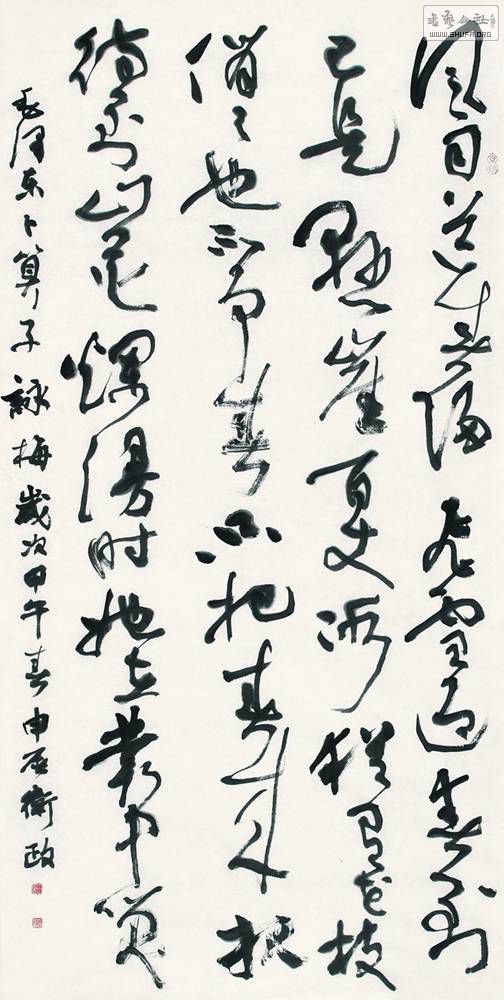 风雨送春归飞雪迎春到
已是悬崖百丈冰犹有花枝
俏俏也不争春只把春来报
待到山花烂漫时她在丛中笑
毛泽东卜算子詠梅歲次甲午春申衛政
书艺公社
WWW.SHUFA.ORG